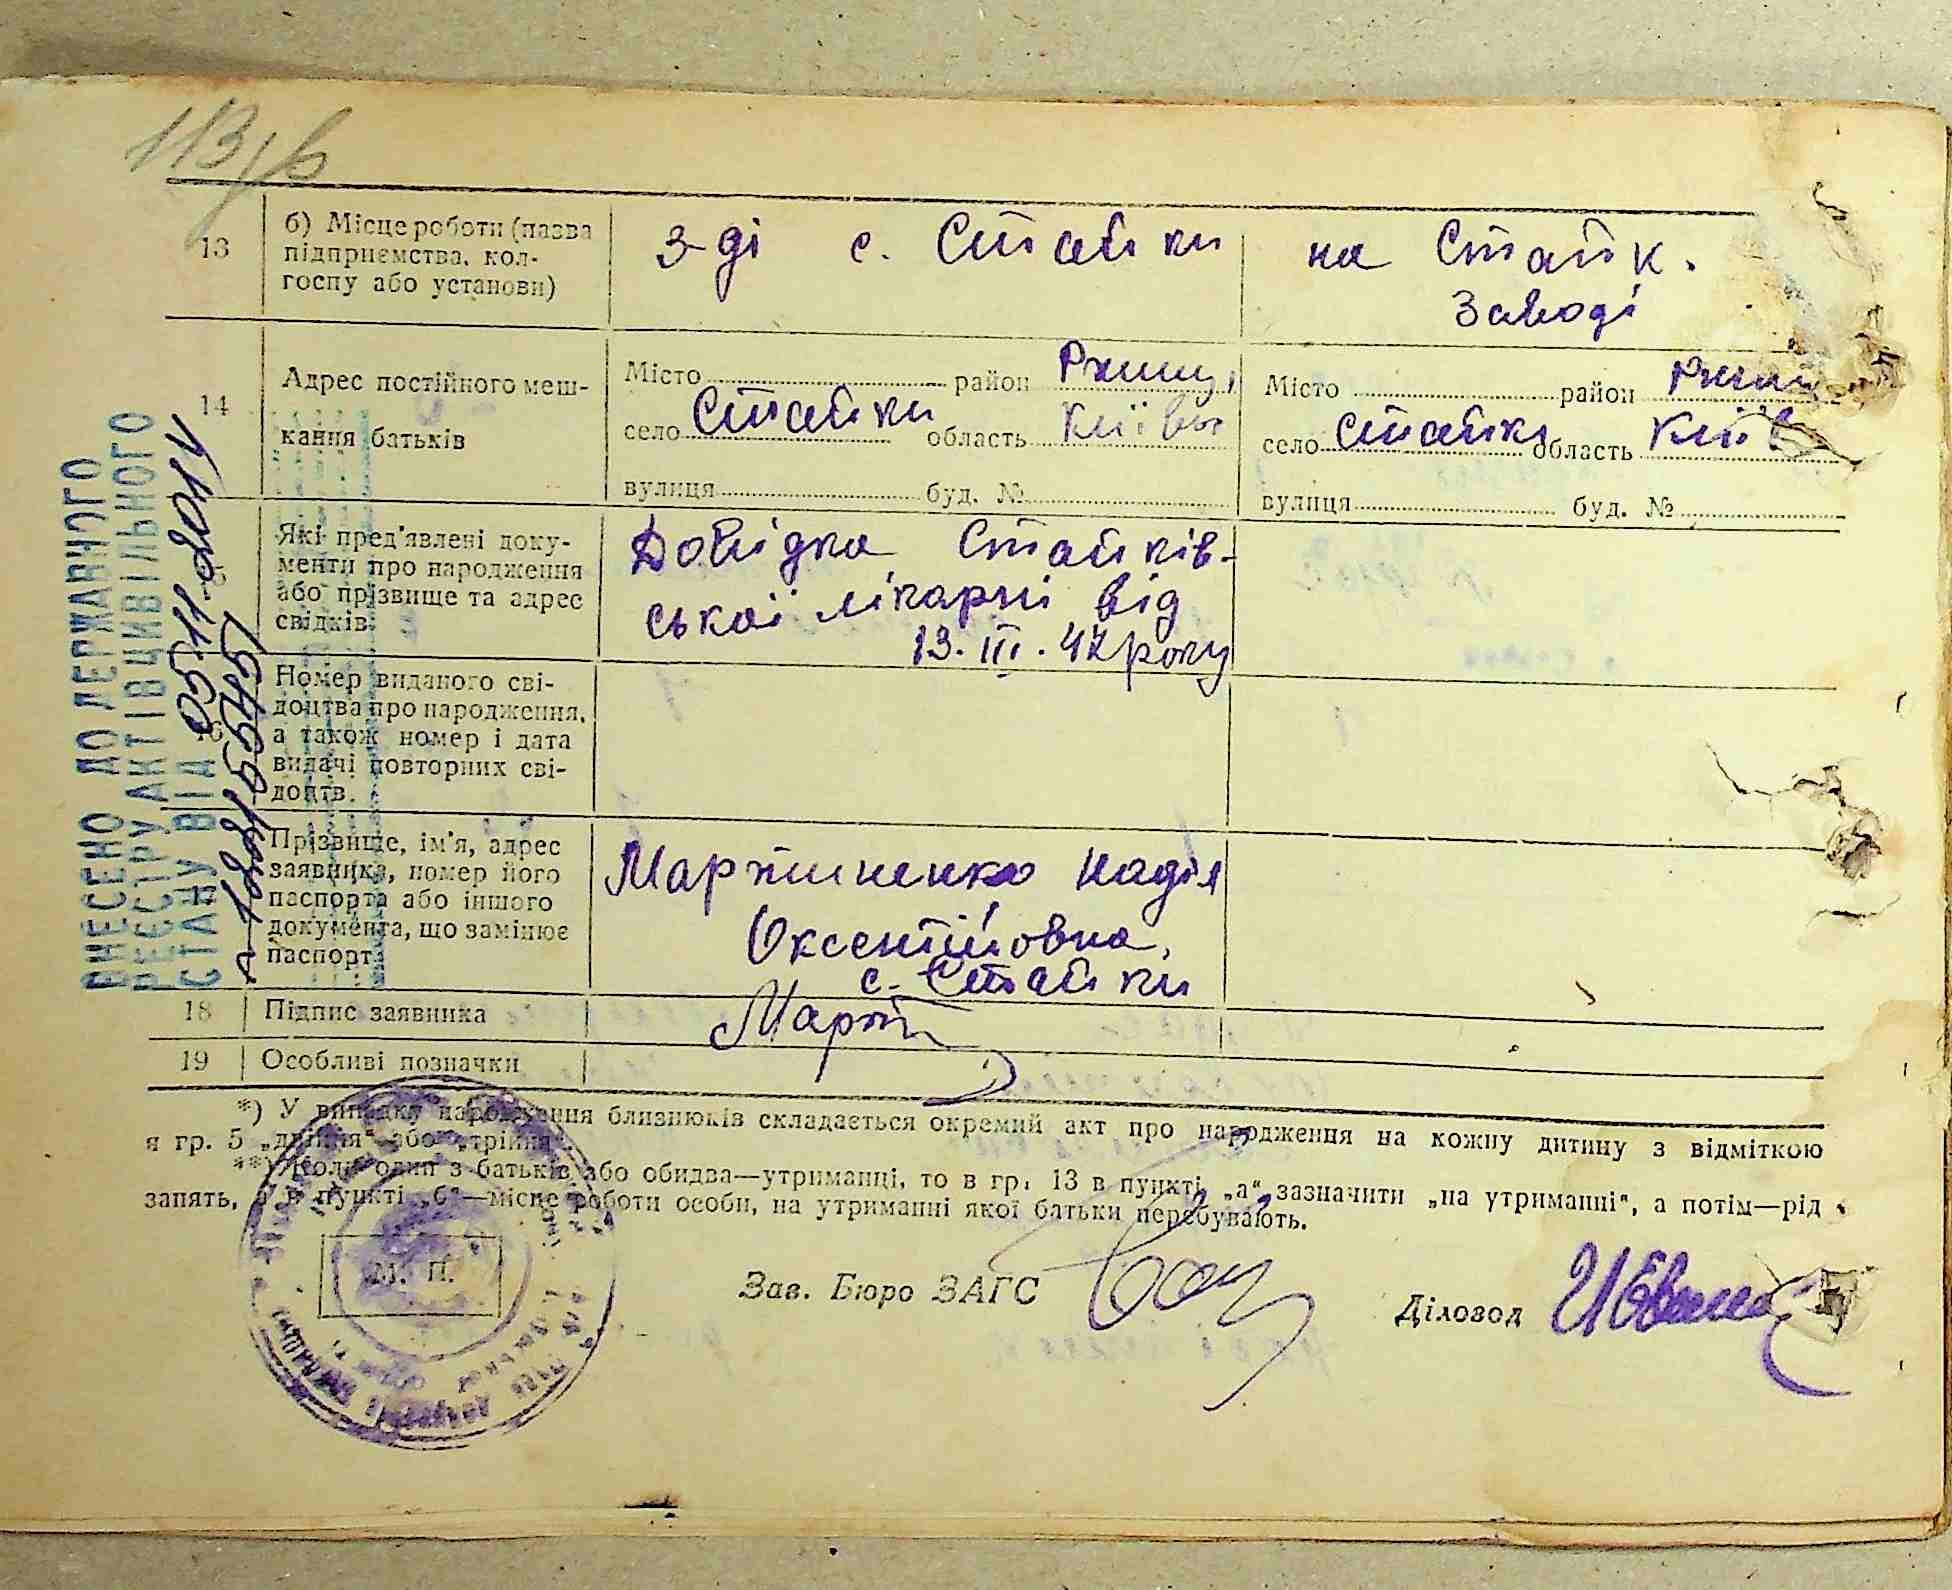 113
13
б) Місце роботи (назва
підприємства, кол-
госпу або установи)
з-ді с. Стайки
на Стайк.
Заводі
14
Адрес постійного меш-
кання батьків
Місто район Ржищ,
село Стайки область Київ
вулиця буд. №
Місто район Ржищ
село Стайки область Київ
вулиця буд. №
Які пред'явлені доку-
менти про народження
або прізвище та адрес
свідків
Довідка Стайків-
ської лікарні від
13. III. 47 року
16
Номер виданого сві-
доцтва про народження,
а також номер і дата
видачі повторних сві-
доцтв.
17
Прізвище, ім'я, адрес
заявника, номер його
паспорта або іншого
документа, що замінює
паспорт
Мартиненко Надія
Оксентіївна,
с. Стайки
18
Підпис заявника
Март
19
Особливі позначки
*) У випадку народження близнюків складається окремий акт про народження на кожну дитину з відміткою
я гр. 5 „двійня" або „трійня"
**) Коли один з батьків або обидва—утриманці, то в гр. 13 в пункті „а" зазначити „на утриманні", а потім—рід
занять, а в пункті „б"—місце роботи особи, на утриманні якої батьки перебувають.
М. П.
Зав. Бюро ЗАГС
Діловод
ВНЕСЕНО ДО ДЕРЖАВНОГО
РЕЄСТРУ АКТІВ ЦИВІЛЬНОГО
СТАНУ ВІД 05.11.2014